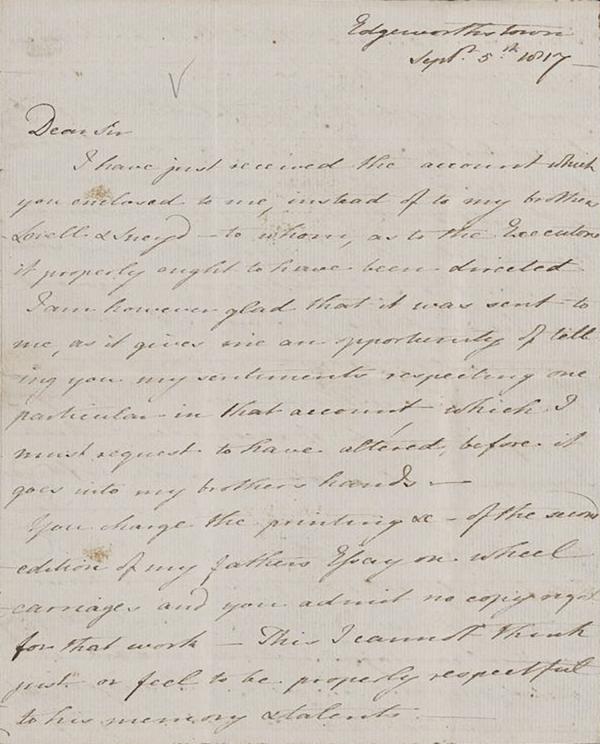 Edgeworthstown
Septr. 5th. 1817
Dear Sir
I have just received the account which
you enclosed to me, instead of to my brothers
Lovell & Sneyd - to whom, as to the Executors
it properly ought to have been directed
I am however glad that it was sent to
me, as it gives me an opportunity of tell
ing you my sentiments respecting one
particular in that account, which I
must request to have altered, before it
goes into my brothers hands —
You charge the printing &c - of the second
edition of my fathers Essay on wheel
carriages and you admit no copy right
for that work — This I cannot think
just or feel to be properly respectful
to his memory & talents —